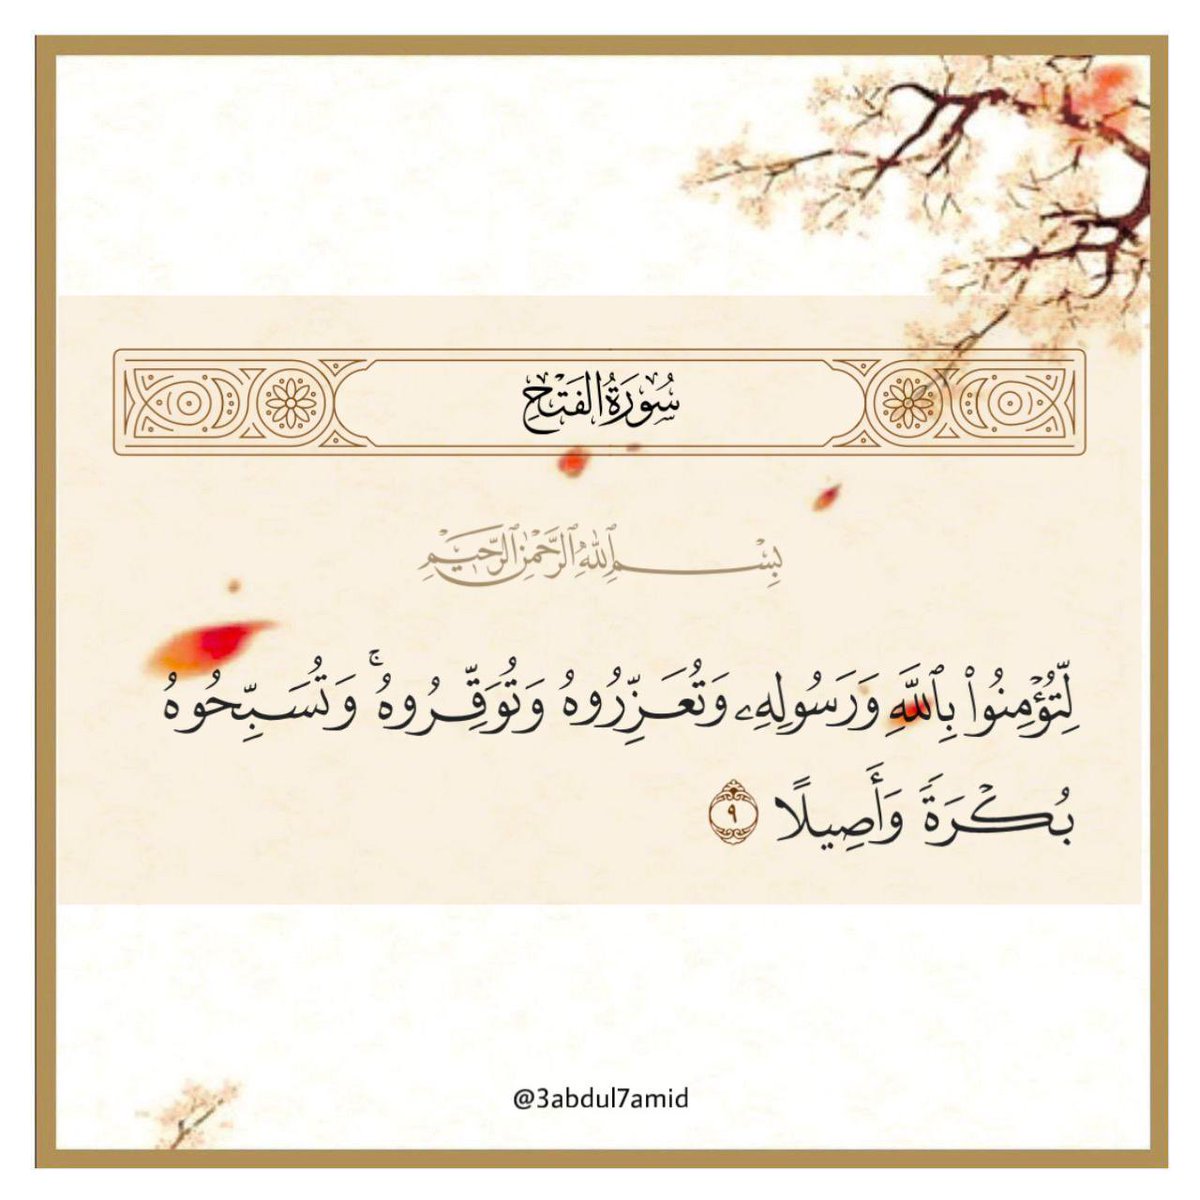 سُورَةُ الفَتْحِ
بِسْمِ ٱللَّهِ ٱلرَّحْمَٰنِ ٱلرَّحِيمِ
لِّتُؤْمِنُوا۟ بِٱللَّهِ وَرَسُولِهِۦ وَتُعَزِّرُوهُ وَتُوَقِّرُوهُ ۚ وَتُسَبِّحُوهُ
بُكْرَةً وَأَصِيلًا ٩
@3abdul7amid